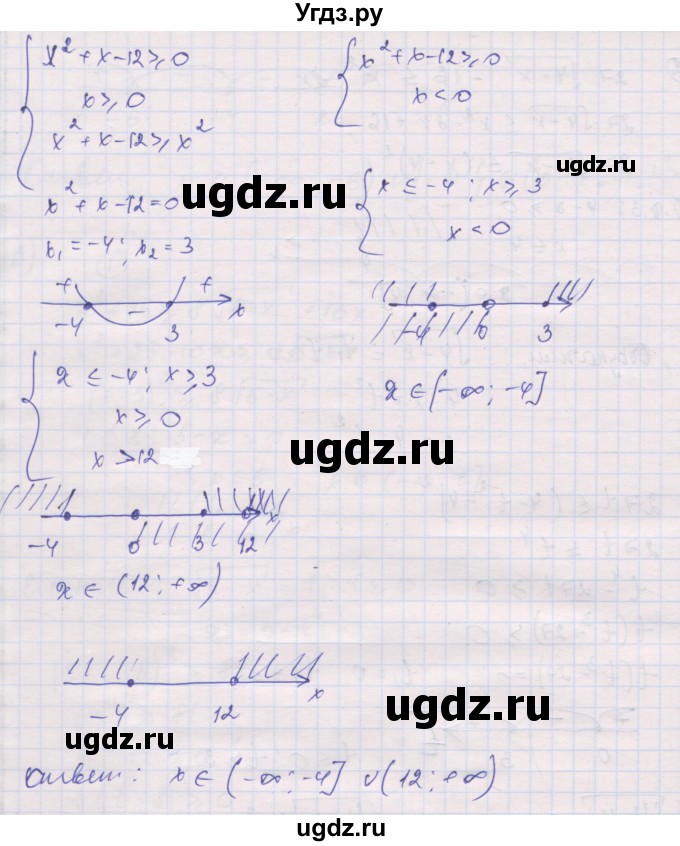 Угдз.ру
x² + x - 12 ≥ 0
x ≥ 0
x² + x - 12 ≥ x²
x² + x - 12 ≥ 0
x < 0
ugdz.ru
x² + x - 12 = 0
ugdz.ru
x₁ = -4; x₂ = 3
x ≤ -4; x ≥ 3
x < 0
+ - +
-4 3 x
-4 0 3
x ≤ -4; x ≥ 3
x ≥ 0
x > 12
x ∈ (-∞; -4]
ugdz.ru
-4 0 3 12 x
ugdz.ru
x ∈ (12; +∞)
-4 12 x
ugdz.ru
ugdz.ru
Ответ: x ∈ (-∞; -4] ∪ (12; +∞)
ugdz.ru
ugdz.ru